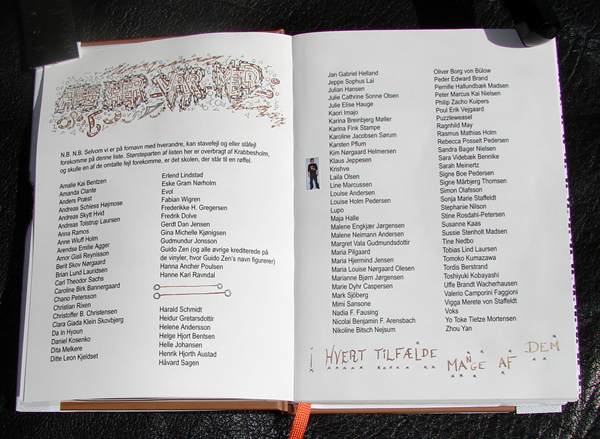 ALLE HER VAR MED
N.B. N.B. Selvom vi er på fornavn med hverandre, kan stavefejl og eller slåfejl
forekomme på denne liste. Størsteparten af listen her er overbragt af Krabbesholm,
og skulle en af de omtalte fejl forekomme, er det skolen, der står til en røffel.
Amalie Kai Bentzen
Amanda Clante
Anders Præst
Andreas Schiess Højmose
Andreas Skytt Hvid
Andreas Tolstrup Laursen
Anna Ramos
Anne Wiuff Holm
Arendse Emilie Agger
Arnor Gisli Reynisson
Berit Skov Nørgaard
Brian Lund Lauridsen
Carl Theodor Sachs
Caroline Birk Bannergaard
Chano Petersson
Christian Rixen
Christoffer B. Christensen
Clara Giada Klein Skovbjerg
Da In Hyoun
Daniel Kosenko
Dita Melkere
Ditte Leon Kjeldset
Erlend Lindstad
Eske Gram Nørholm
Evol
Fabian Wigren
Frederikke H. Gregersen
Fredrik Dolve
Gerdt Dan Jensen
Gina Michelle Kjønigsen
Gudmundur Jonsson
Guido Zen (og alle øvrige krediterede på
de vinyler, hvor Guido Zen's navn figurerer)
Hanna Ancher Poulsen
Hanne Kari Ravndal
Harald Schmidt
Heidur Gretarsdottir
Helene Andersson
Helge Hjort Bentsen
Helle Johansen
Henrik Hjorth Austad
Håvard Sagen
Jan Gabriel Helland
Jeppe Sophus Lai
Julian Hansen
Julie Cathrine Sonne Olsen
Julie Elise Hauge
Kaori Imajo
Karina Breinbjerg Møller
Karina Fink Stampe
Karoline Jacobsen Sørum
Karsten Pflum
Kim Nørgaard Helmersen
Klaus Jeppesen
Krishve
Laila Olsen
Line Marcussen
Louise Anderson
Louise Holm Pedersen
Lupo
Maja Halle
Malene Engkjær Jørgensen
Malene Neimann Andersen
Margret Vala Gudmundsdottir
Maria Pilgaard
Maria Hjermind Jensen
Maria Louise Nørgaard Olesen
Marianne Bjørn Jørgensen
Marie Dyhr Caspersen
Mark Sjöberg
Mimi Sansone
Nadia F. Fausing
Nicolai Benjamin F. Arensbach
Nikoline Bitsch Nejsum
Oliver Borg von Bülow
Peder Edward Brand
Pernille Hallundbæk Madsen
Peter Marcus Kai Nielsen
Philip Zacho Kuipers
Poul Erik Vejgaard
Puzzleweasel
Ragnhild May
Rasmus Mathias Holm
Rebecca Posselt Pedersen
Sandra Bager Nielsen
Sara Videbæk Bennike
Sarah Meinertz
Signe Boe Pedersen
Signe Mårbjerg Thomsen
Simon Olaisen
Sonja Marie Staffeldt
Stephanie Nilson
Stine Rosdahl-Petersen
Susanne Kaas
Sussie Stenholt Madsen
Tine Nedbo
Tobias Lind Laursen
Tomoko Kumazawa
Tordis Berstrand
Toshiyuki Kobayashi
Uffe Brandt Wacherhausen
Valerio Camporini Faggioni
Vigga Merete von Staffeldt
Voks
Yo Toke Tietze Mortensen
Zhou Yan
I HVERT TILFÆLDE MANGE AF DEM